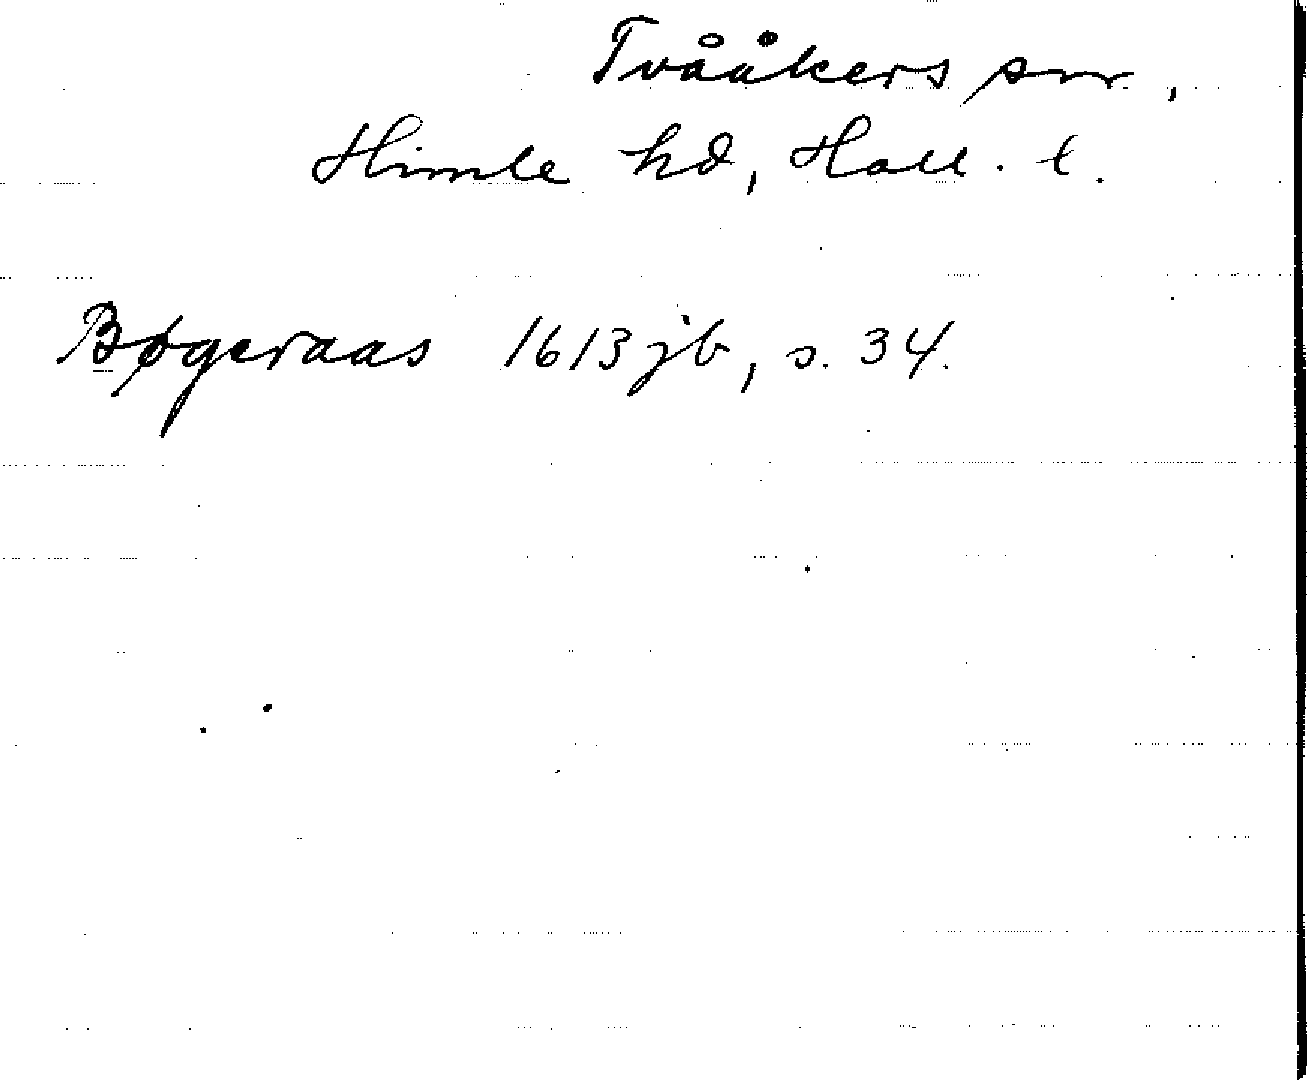 Tvååkers snr.,
Himle hd, Hall. l.
Bøgeraas 1613 jb, s. 34.